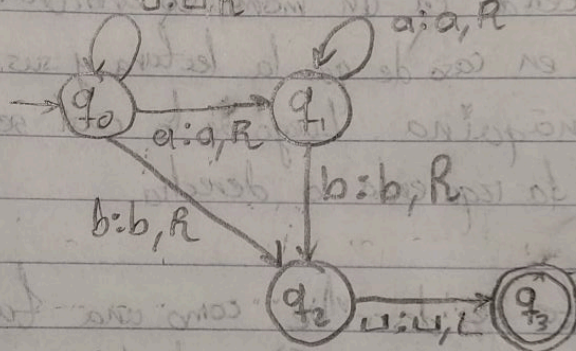 a:a, R
q₀
q₁
a:a, R
b:b, R
b:b, R
q₂
⊔:⊔, L
q₃